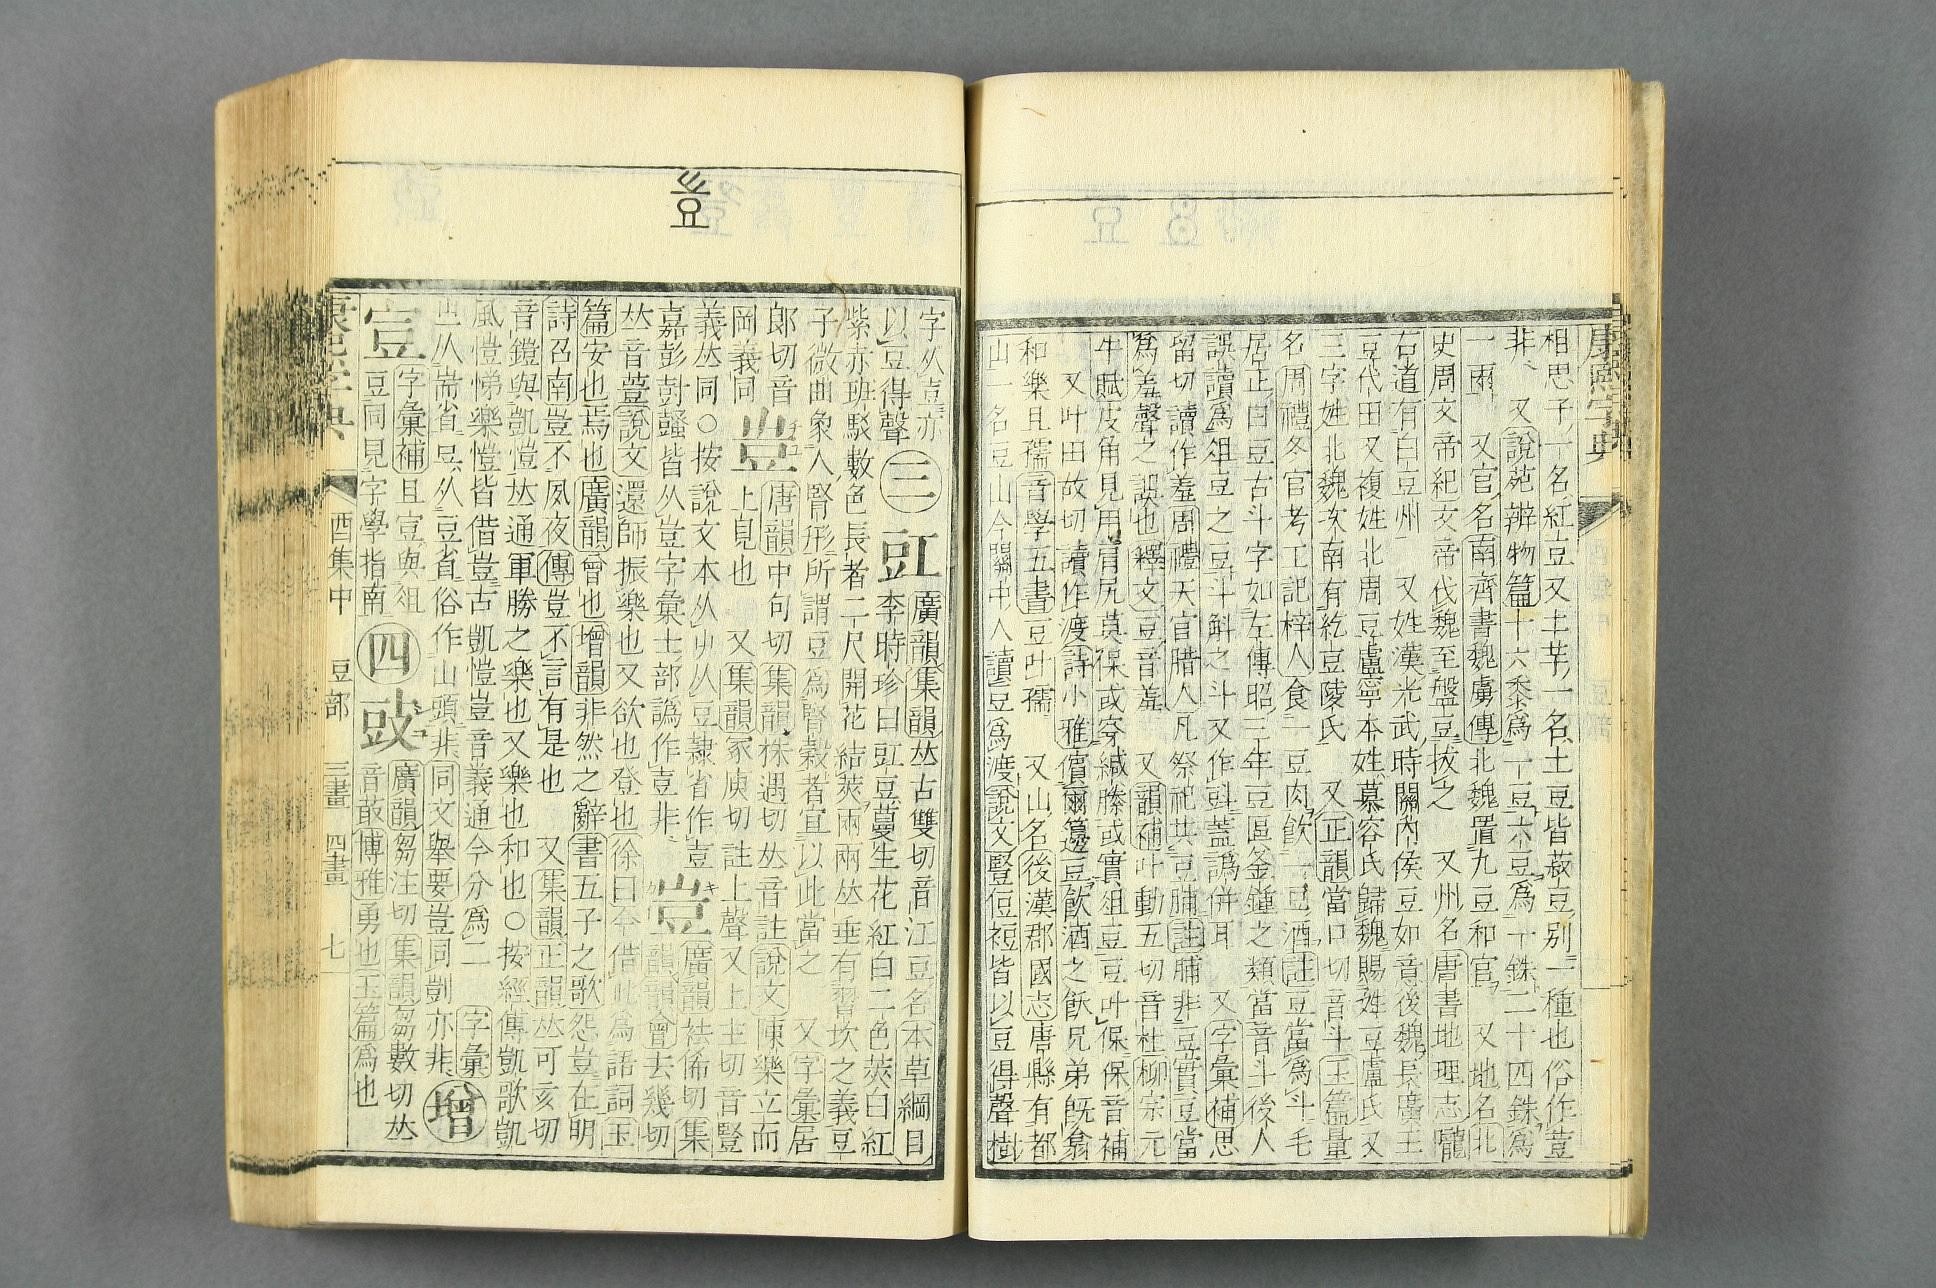 康熙字典
相思子一名紅豆又土芋一名土豆皆菽豆別一種也俗作荳
非 又說苑辨物篇十六黍爲一豆六豆爲一銖二十四銖爲
一兩 又官名南齊書魏虜傳北魏置九豆和官 又地名北
史周文帝紀文帝伐魏至盤豆拔之 又州名唐書地理志隴
右道有白豆州 又姓漢光武時關內侯豆如意後魏長廣王
豆代田又複姓北周豆盧寧本姓慕容氏歸魏賜姓豆盧氏又
三字姓北魏次南有紇豆陵氏 又正韻當口切音斗玉篇量
名周禮冬官考工記梓人食一豆肉飲一豆酒註豆當爲斗毛
居正曰豆古斗字如左傳昭三年豆區釜鍾之類當音斗後人
誤讀爲俎豆之豆斗斛之斗又作㪷蓋譌併耳 又字彙補思
留切讀作羞周禮天官腊人凡祭祀共豆脯註脯非豆實豆當
爲羞聲之誤也釋文豆音羞 又韻補叶動五切音杜柳宗元
牛賦皮角見用肩尻莫保或穿緘縢或實俎豆豆叶保保音補
又叶田故切讀作渡詩小雅儐爾籩豆飲酒之飫兄弟旣翕
和樂且孺音學五書豆叶孺 又山名後漢郡國志唐縣有都
山一名豆山今關中人讀豆爲渡說文豎侸裋皆以豆得聲樹
豈
字从壴壴亦
以豆得聲 三 豇 廣韻集韻𠀤古雙切音江豆名本草綱目
李時珍曰豇豆蔓生花紅白二色莢白紅
紫赤班駁數色長者二尺開花結莢兩兩𠀤垂有習坎之義豆
子微曲象人腎形所謂豆爲腎穀者宜以此當之 又字彙居
郞切音
岡義同 豈 唐韻中句切集韻株遇切𠀤音註說文陳樂立而
上見也 又集韻冢庾切註上聲又上主切音豎
義𠀤同○按說文本从屮从豆隸省作壴
嘉彭尌鼖皆从壴字彙士部譌作壴非 豈 廣韻袪俙切集
韻韻會去幾切
𠀤音䔇說文還師振樂也又欲也登也徐曰今借此爲語詞玉
篇安也焉也廣韻曾也增韻非然之辭書五子之歌怨豈在明
詩召南豈不夙夜傳豈不言有是也 又集韻正韻𠀤可亥切
音鎧與凱愷𠀤通軍勝之樂也又樂也和也○按經傳凱歌凱
風愷悌樂愷皆借豈古凱愷豈音義通今分爲二 字彙
豈从耑省旦从豆省俗作山頭非同文舉要豈同剴亦非 增
䇺 字彙補且䇺與俎
豆同見字學指南 四 豉 廣韻芻注切集韻芻數切𠀤
音菆博雅勇也玉篇爲也
康熙字典 酉集中 豆部 三畫 四畫 七